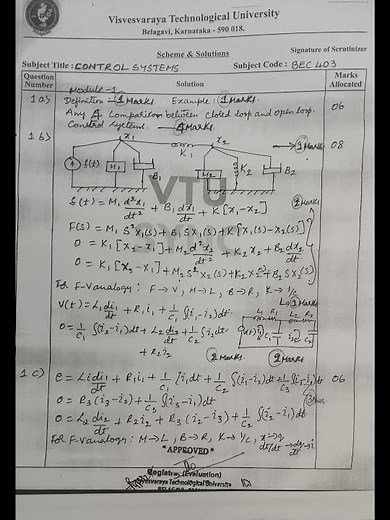 Visvesvaraya Technological University
Belagavi, Karnataka - 590 018.
Scheme & Solutions
Signature of Scrutinizer
Subject Title : CONTROL SYSTEMS
Subject Code : BEC 403
Question Number
Solution
Marks Allocated
Module-1
1 a) Definition - 1 Marks. Example : 1 Marks. 06
Any 4 Comparison between closed loop and open loop
Control Systems. - 4 Marks.
1 b) x1 x2 → 1 Marks 08
K1
f(t) M1 B1 M2 K2 B2
VTU
f(t) = M1 d²x1/dt² + B1 dx1/dt + K[x1-x2] 2 Marks
F(s) = M1 S² X1(s) + B1 S X1(s) + K[X1(s) - X2(s)]
0 = K1[x2-x1] + M2 d²x2/dt² + K2x2 + B2 dx2/dt
0 = K1[X2-X1] + M2 S² X2(s) + K2 X2(s) + B2 S X2(s)
For F-V analogy: F→V, M→L, B→R, K→1/c
V(t) = L1 di1/dt + R1 i1 + 1/C1 ∫(i1-i2)dt. L1 R1 L2 R2
0 = 1/C1 ∫(i2-i1)dt + L2 di2/dt + 1/C2 ∫i2dt C1 C2
+ R2 i2 2 Marks 2 Marks
1 c) e = L1 di1/dt + R1 i1 + 1/C1 ∫i1 dt + 1/C2 ∫(i1-i2)dt + 06
0 = R3(i3-i2) + 1/C2 ∫(i3-i1)dt
0 = L2 di2/dt + R2 i2 + R3(i2-i3) + 1/C2 ∫(i2-i1)dt
For F-V analogy: M→L, B→R, K→1/c,
"APPROVED"
Registrar (Evaluation)
Visvesvaraya Technological University